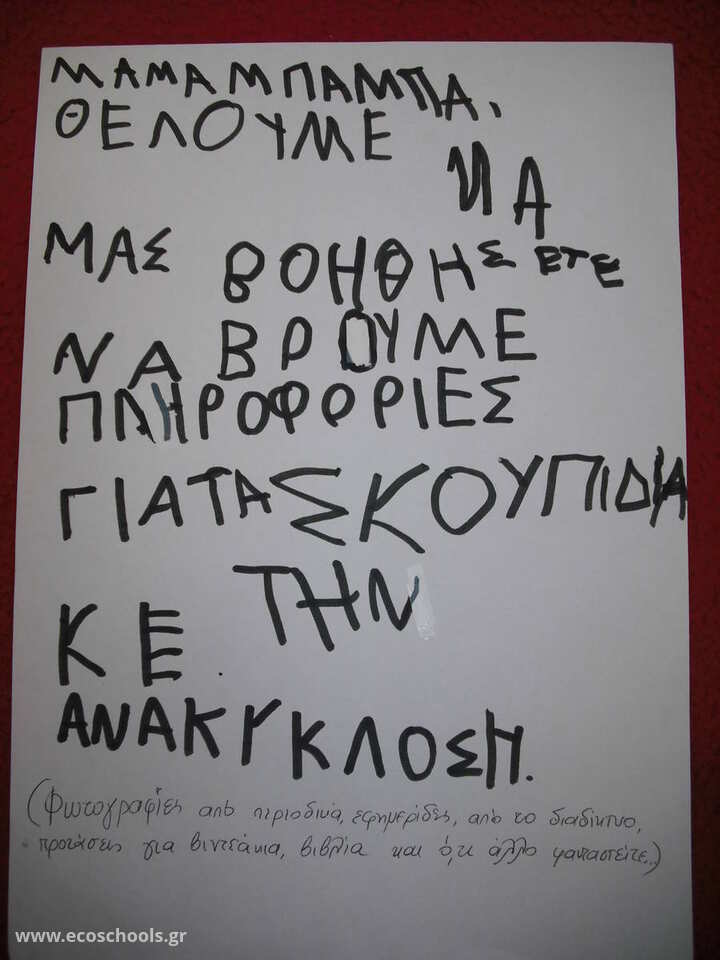 ΜΑΜΑ ΜΠΑΜΠΑ,
ΘΕΛΟΥΜΕ
ΝΑ
ΜΑΣ ΒΟΗΘΗΣΕΤΕ
ΝΑ ΒΡΟΥΜΕ
ΠΛΗΡΟΦΟΡΙΕΣ
ΓΙΑ ΤΑ ΣΚΟΥΠΙΔΙΑ
ΚΕ ΤΗΝ
ΑΝΑΚΥΚΛΟΣΗ.
(Φωτογραφίες από περιοδικά, εφημερίδες, από το διαδίκτυο,
προτάσεις για βιντεάκια, βιβλία και ό,τι άλλο φανταστείτε..)
www.ecoschools.gr